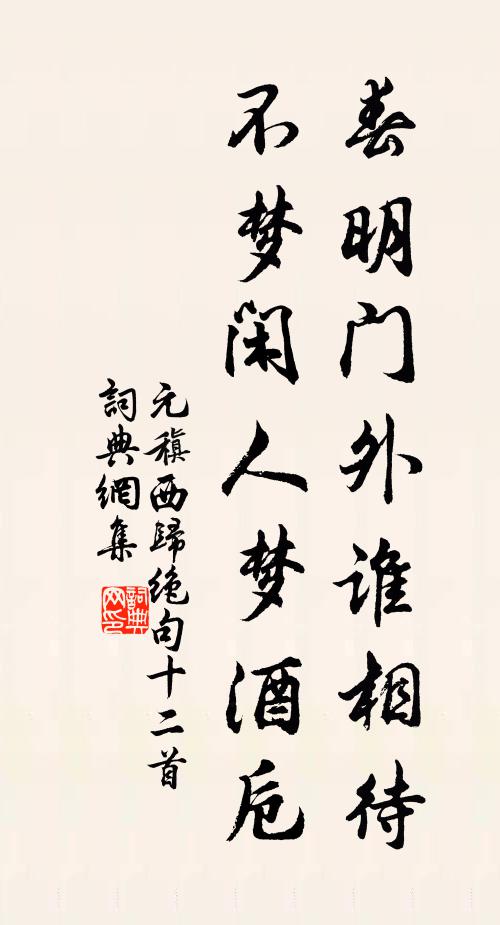 春明门外谁相待
不梦闲人梦酒卮
元稹西歸絶句十二首
詞典網集
詞典网印